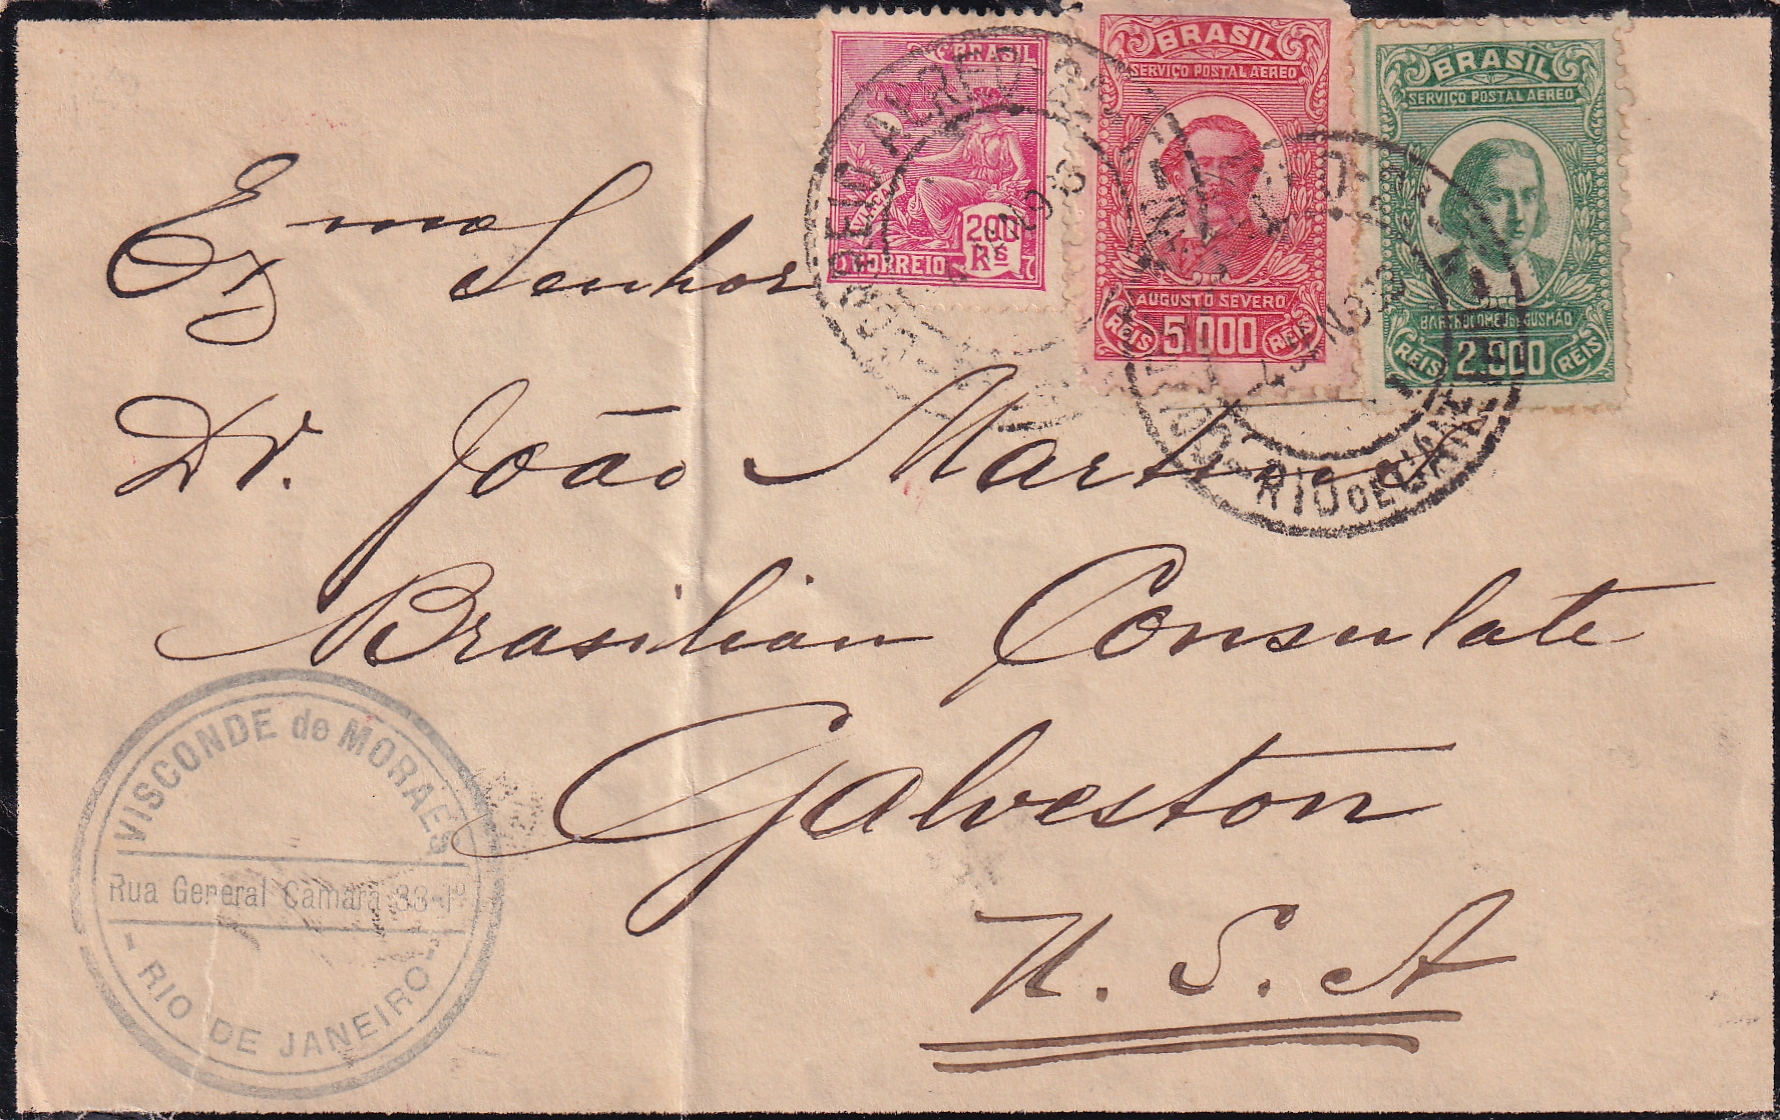 BRASIL
VIAÇÃO
200 Rˢ
CORREIO
BRASIL
SERVIÇO POSTAL AEREO
AUGUSTO SEVERO
REIS 5.000 REIS
BRASIL
SERVIÇO POSTAL AEREO
BARTHOLOMEU DE GUSMÃO
REIS 2.000 REIS
AEREO
RIO DE JANEIRO
Exmo
Senhor
Dr. João Martins
Brasilian Consulate
Galveston
U. S. A
VISCONDE de MORAES
Rua General Camara 33-1º
- RIO DE JANEIRO -